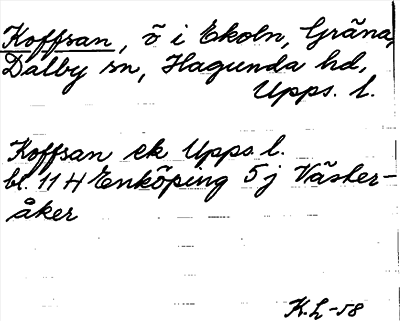 Koffsan, ö i Ekoln, Gräna,
Dalby sn, Hagunda hd,
Upps. l.
Koffsan ek Upps. l.
bl. 11 H Enköping 5 j Väster-
åker
K.L-58